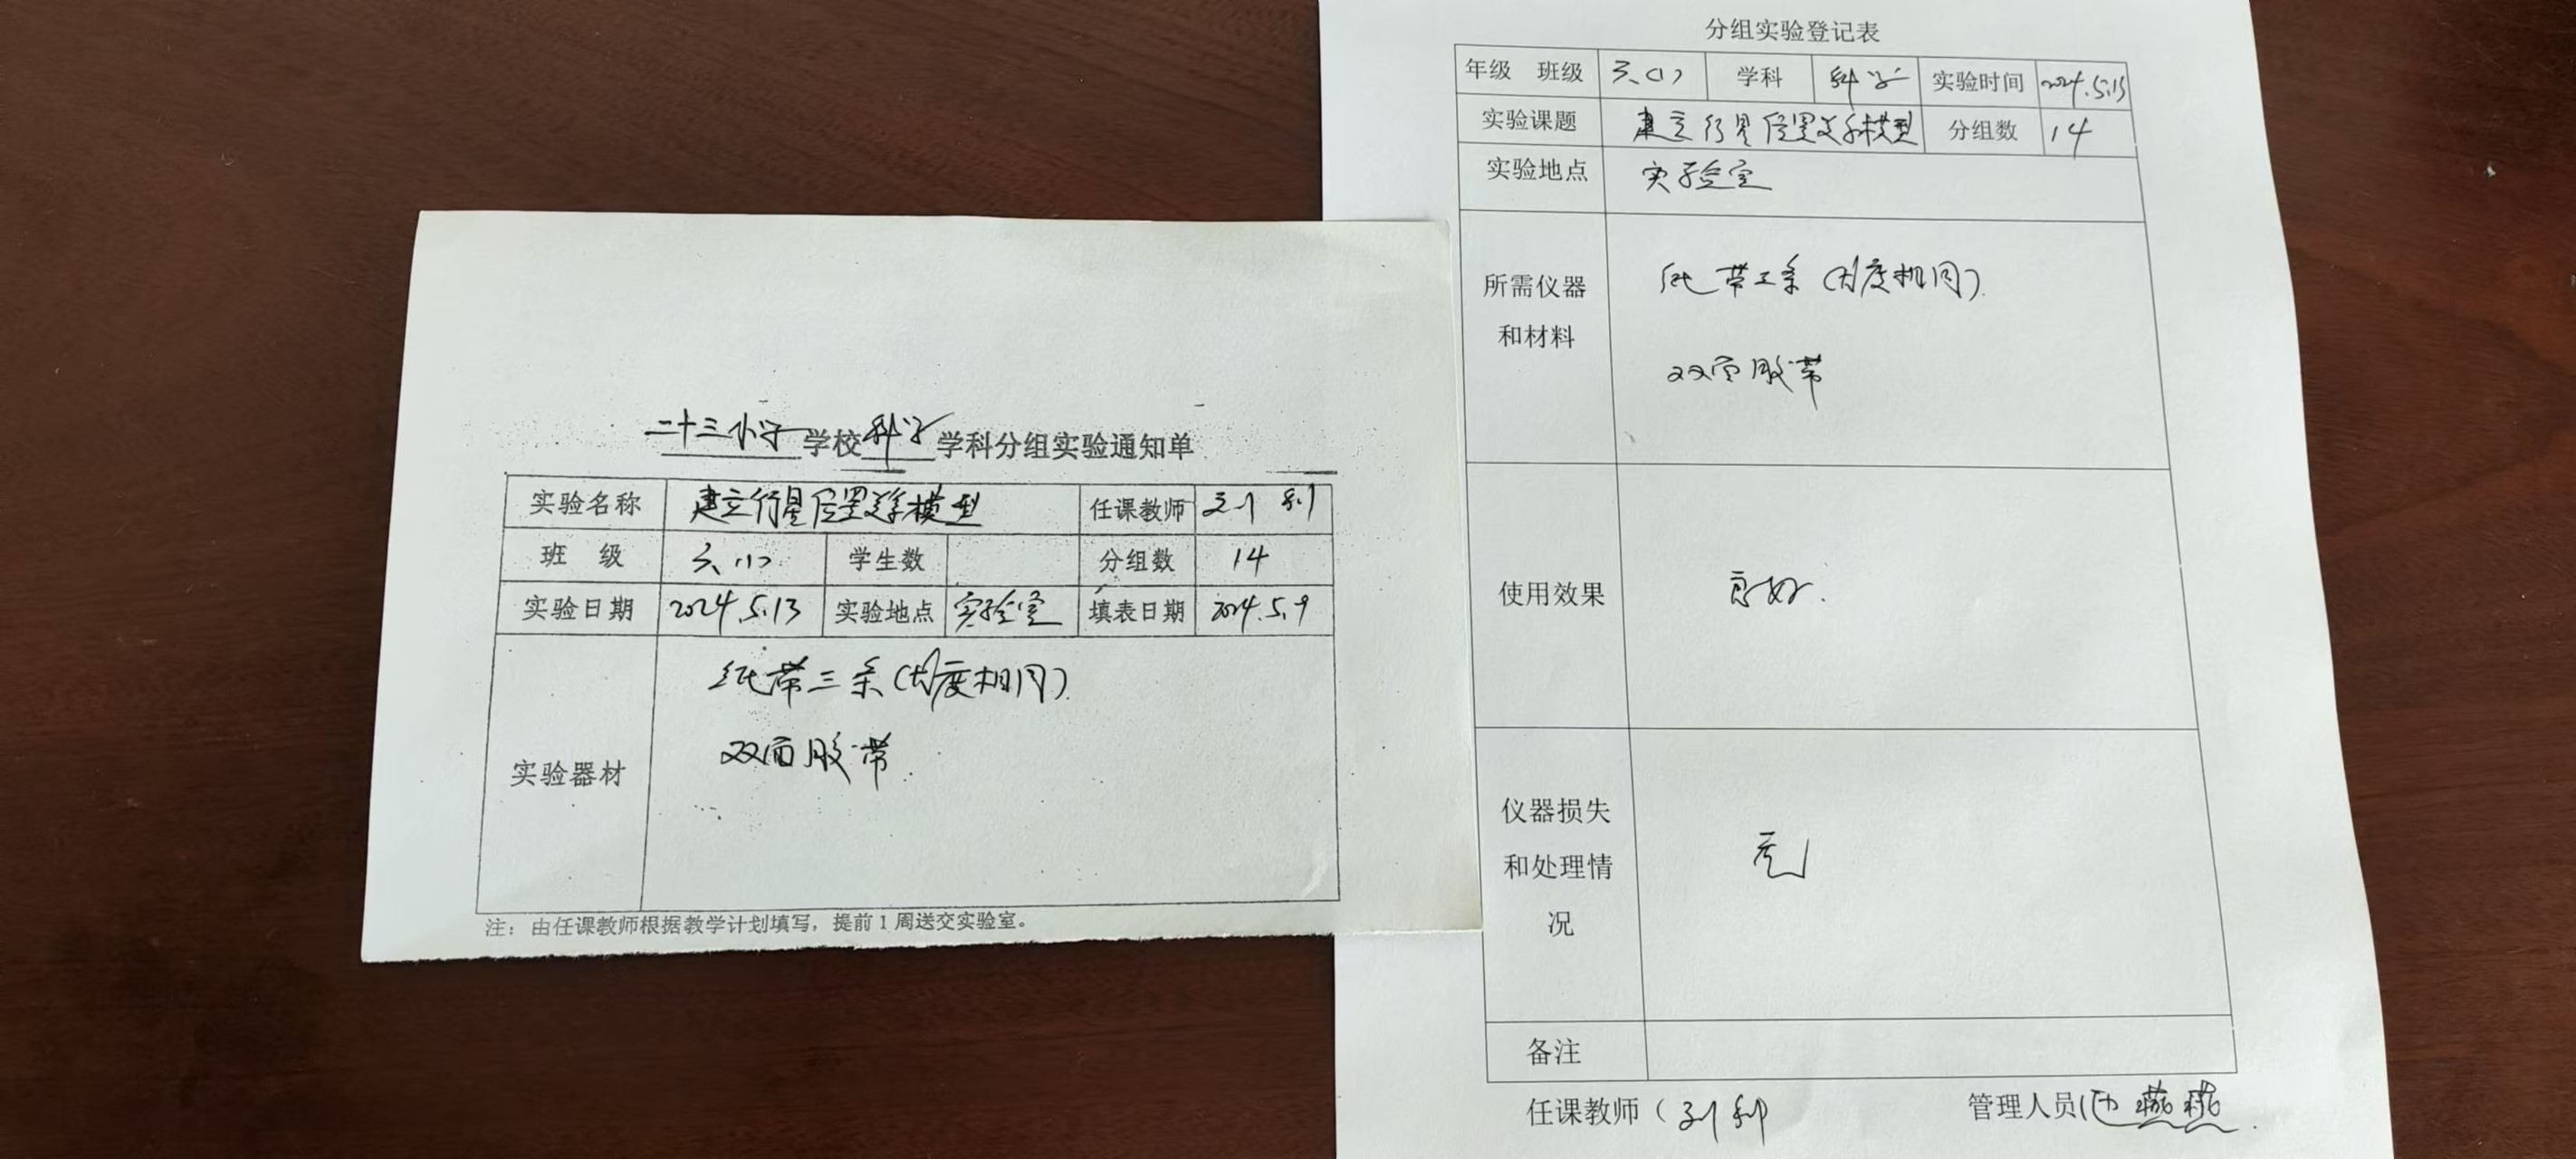 二十三小学学校科学学科分组实验通知单
实验名称 建立行星位置关系模型 任课教师 刘
班 级 三、(1) 学生数 分组数 14
实验日期 2024.5.13 实验地点 实验室 填表日期 2024.5.9
实验器材
纸带三条(长度相同)
双面胶带
注：由任课教师根据教学计划填写，提前1周送交实验室。
分组实验登记表
年级 班级 三、(1) 学科 科学 实验时间 2024.5.13
实验课题 建立行星位置关系模型 分组数 14
实验地点 实验室
所需仪器
和材料
纸带三条(长度相同)
双面胶带
使用效果 良好.
仪器损失
和处理情
况
无
备注
任课教师（刘 管理人员 燕燕